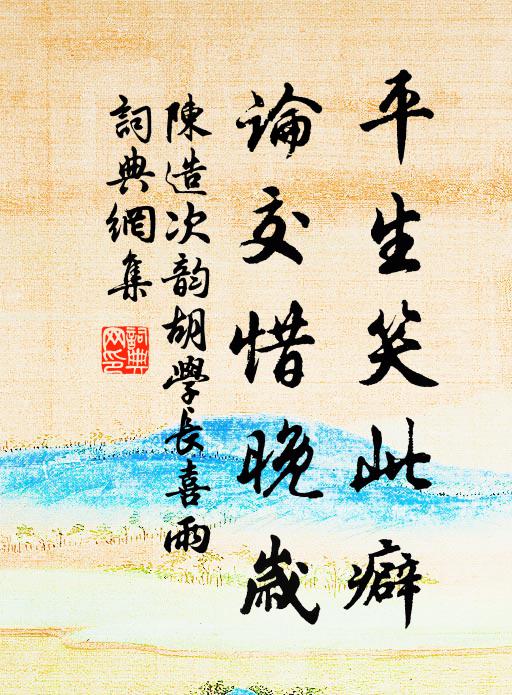 平生笑此癖
論交惜晚歲
陳造次韵胡學長喜雨
詞典網集
詞典網印